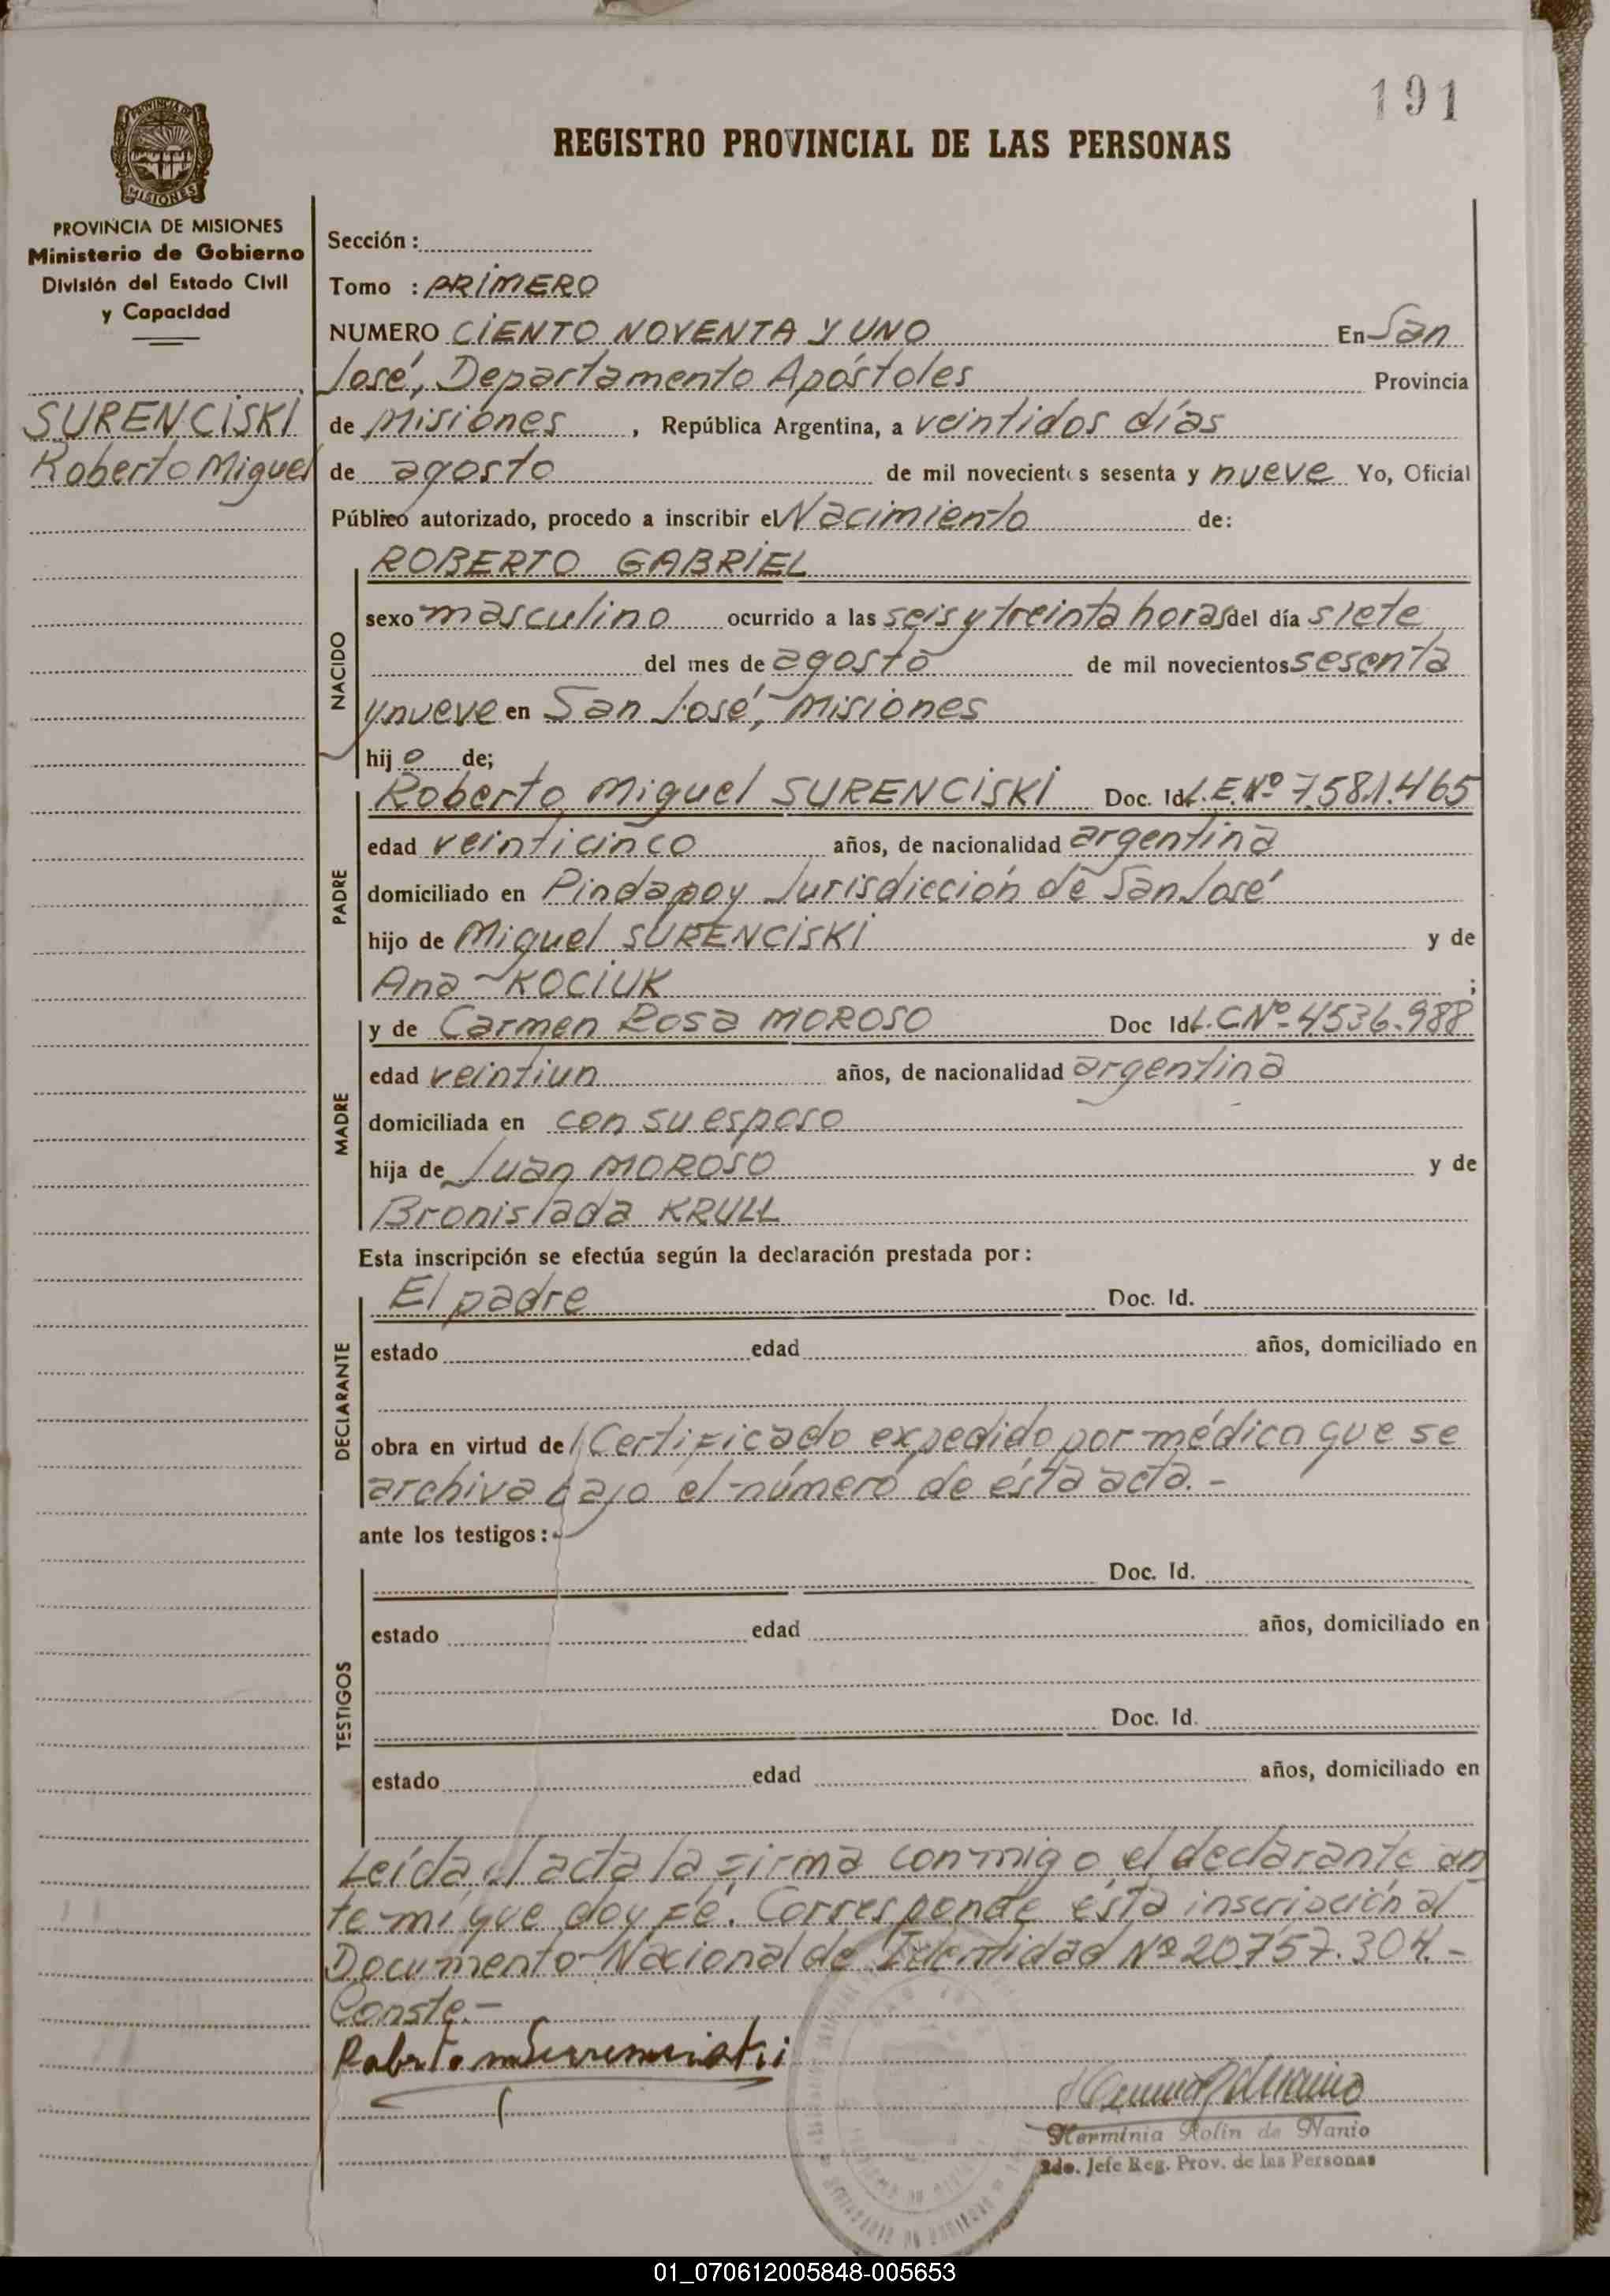 191
REGISTRO PROVINCIAL DE LAS PERSONAS
PROVINCIA DE MISIONES
MISIONES
PROVINCIA DE MISIONES
Ministerio de Gobierno
División del Estado Civil
y Capacidad
SURENCISKI
Roberto Miguel
Sección :
Tomo : PRIMERO
NUMERO CIENTO NOVENTA Y UNO En San
José, Departamento Apóstoles Provincia
de Misiones , República Argentina, a veintidos días
de agosto de mil novecientos sesenta y nueve Yo, Oficial
Público autorizado, procedo a inscribir el Nacimiento de:
NACIDO
ROBERTO GABRIEL
sexo masculino ocurrido a las seis y treinta horas del día siete
del mes de agosto de mil novecientos sesenta
y nueve en San José, Misiones
hij o de;
PADRE
Roberto Miguel SURENCISKI Doc. Id L.E.Nº 7.581.465
edad veinticinco años, de nacionalidad argentina
domiciliado en Pindapoy Jurisdicción de San José
hijo de Miguel SURENCISKI y de
Ana KOCIUK ;
MADRE
y de Carmen Rosa MOROSO Doc Id L.C.Nº 4536.988
edad veintiun años, de nacionalidad argentina
domiciliada en con su esposo
hija de Juan MOROSO y de
Bronislada KRULL
Esta inscripción se efectúa según la declaración prestada por :
DECLARANTE
El padre Doc. Id.
estado edad años, domiciliado en
obra en virtud de Certificado expedido por médico que se
archiva bajo el número de ésta acta. -
ante los testigos :
TESTIGOS
Doc. Id.
estado edad años, domiciliado en
Doc. Id.
estado edad años, domiciliado en
Leída el acta la firma conmigo el declarante an
te mí que doy fé. Corresponde ésta inscripción al
Documento Nacional de Identidad Nº 20757.304.-
Conste.-
Roberto m Surenciski
Herminia Rolin de Nanio
2do. Jefe Reg. Prov. de las Personas
01_070612005848-005653